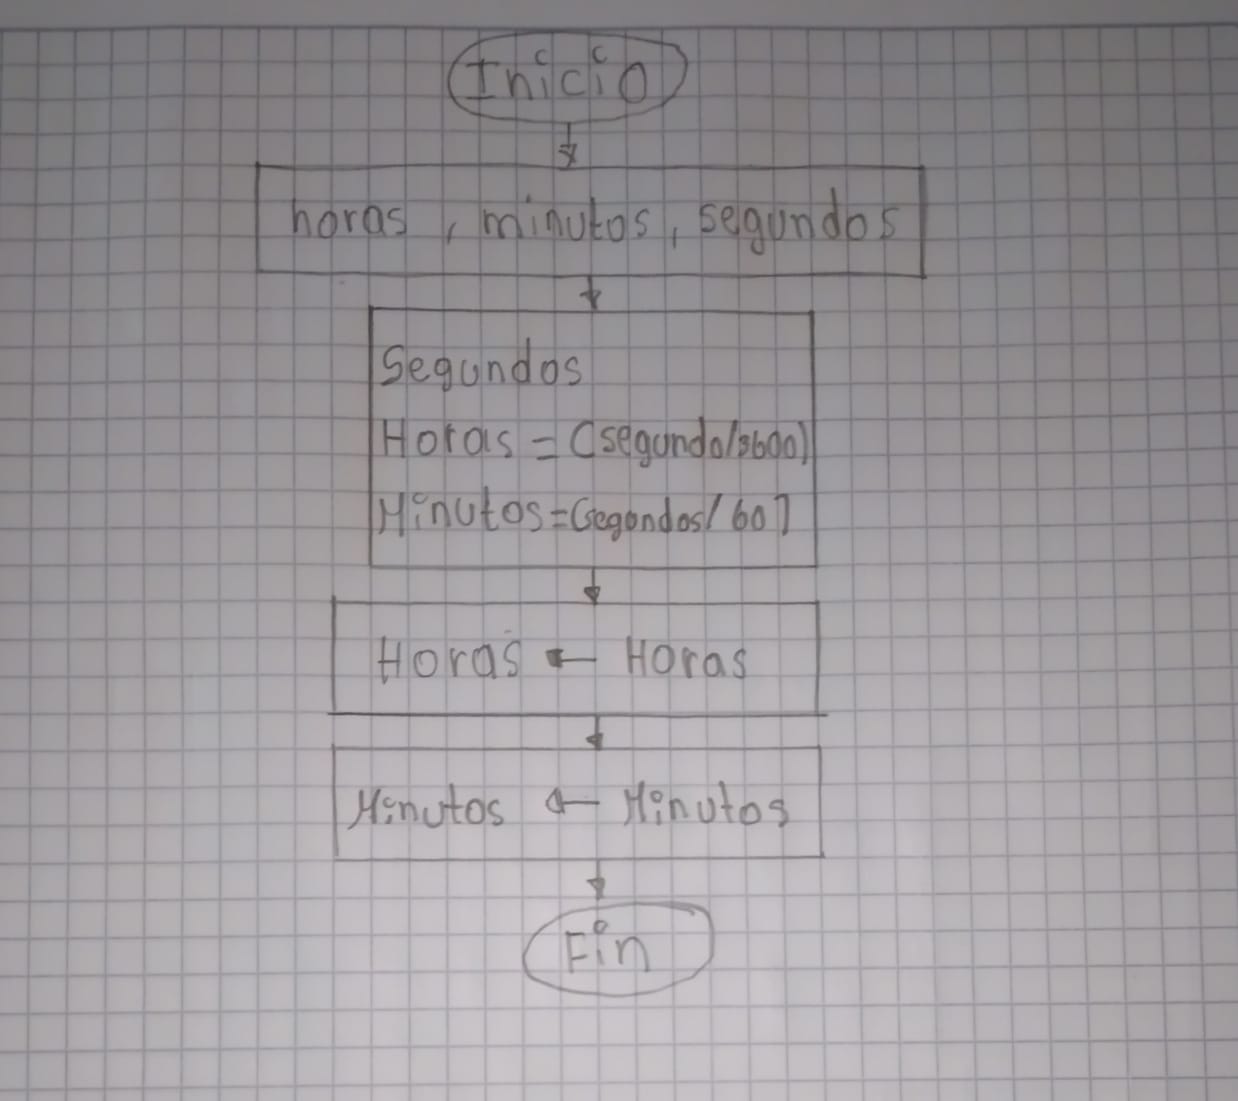 Inicio
horas, minutos, segundos
Segundos
Horas = (segundo/3600)
Minutos=(segundos/60)
Horas ← Horas
Minutos ← Minutos
Fin